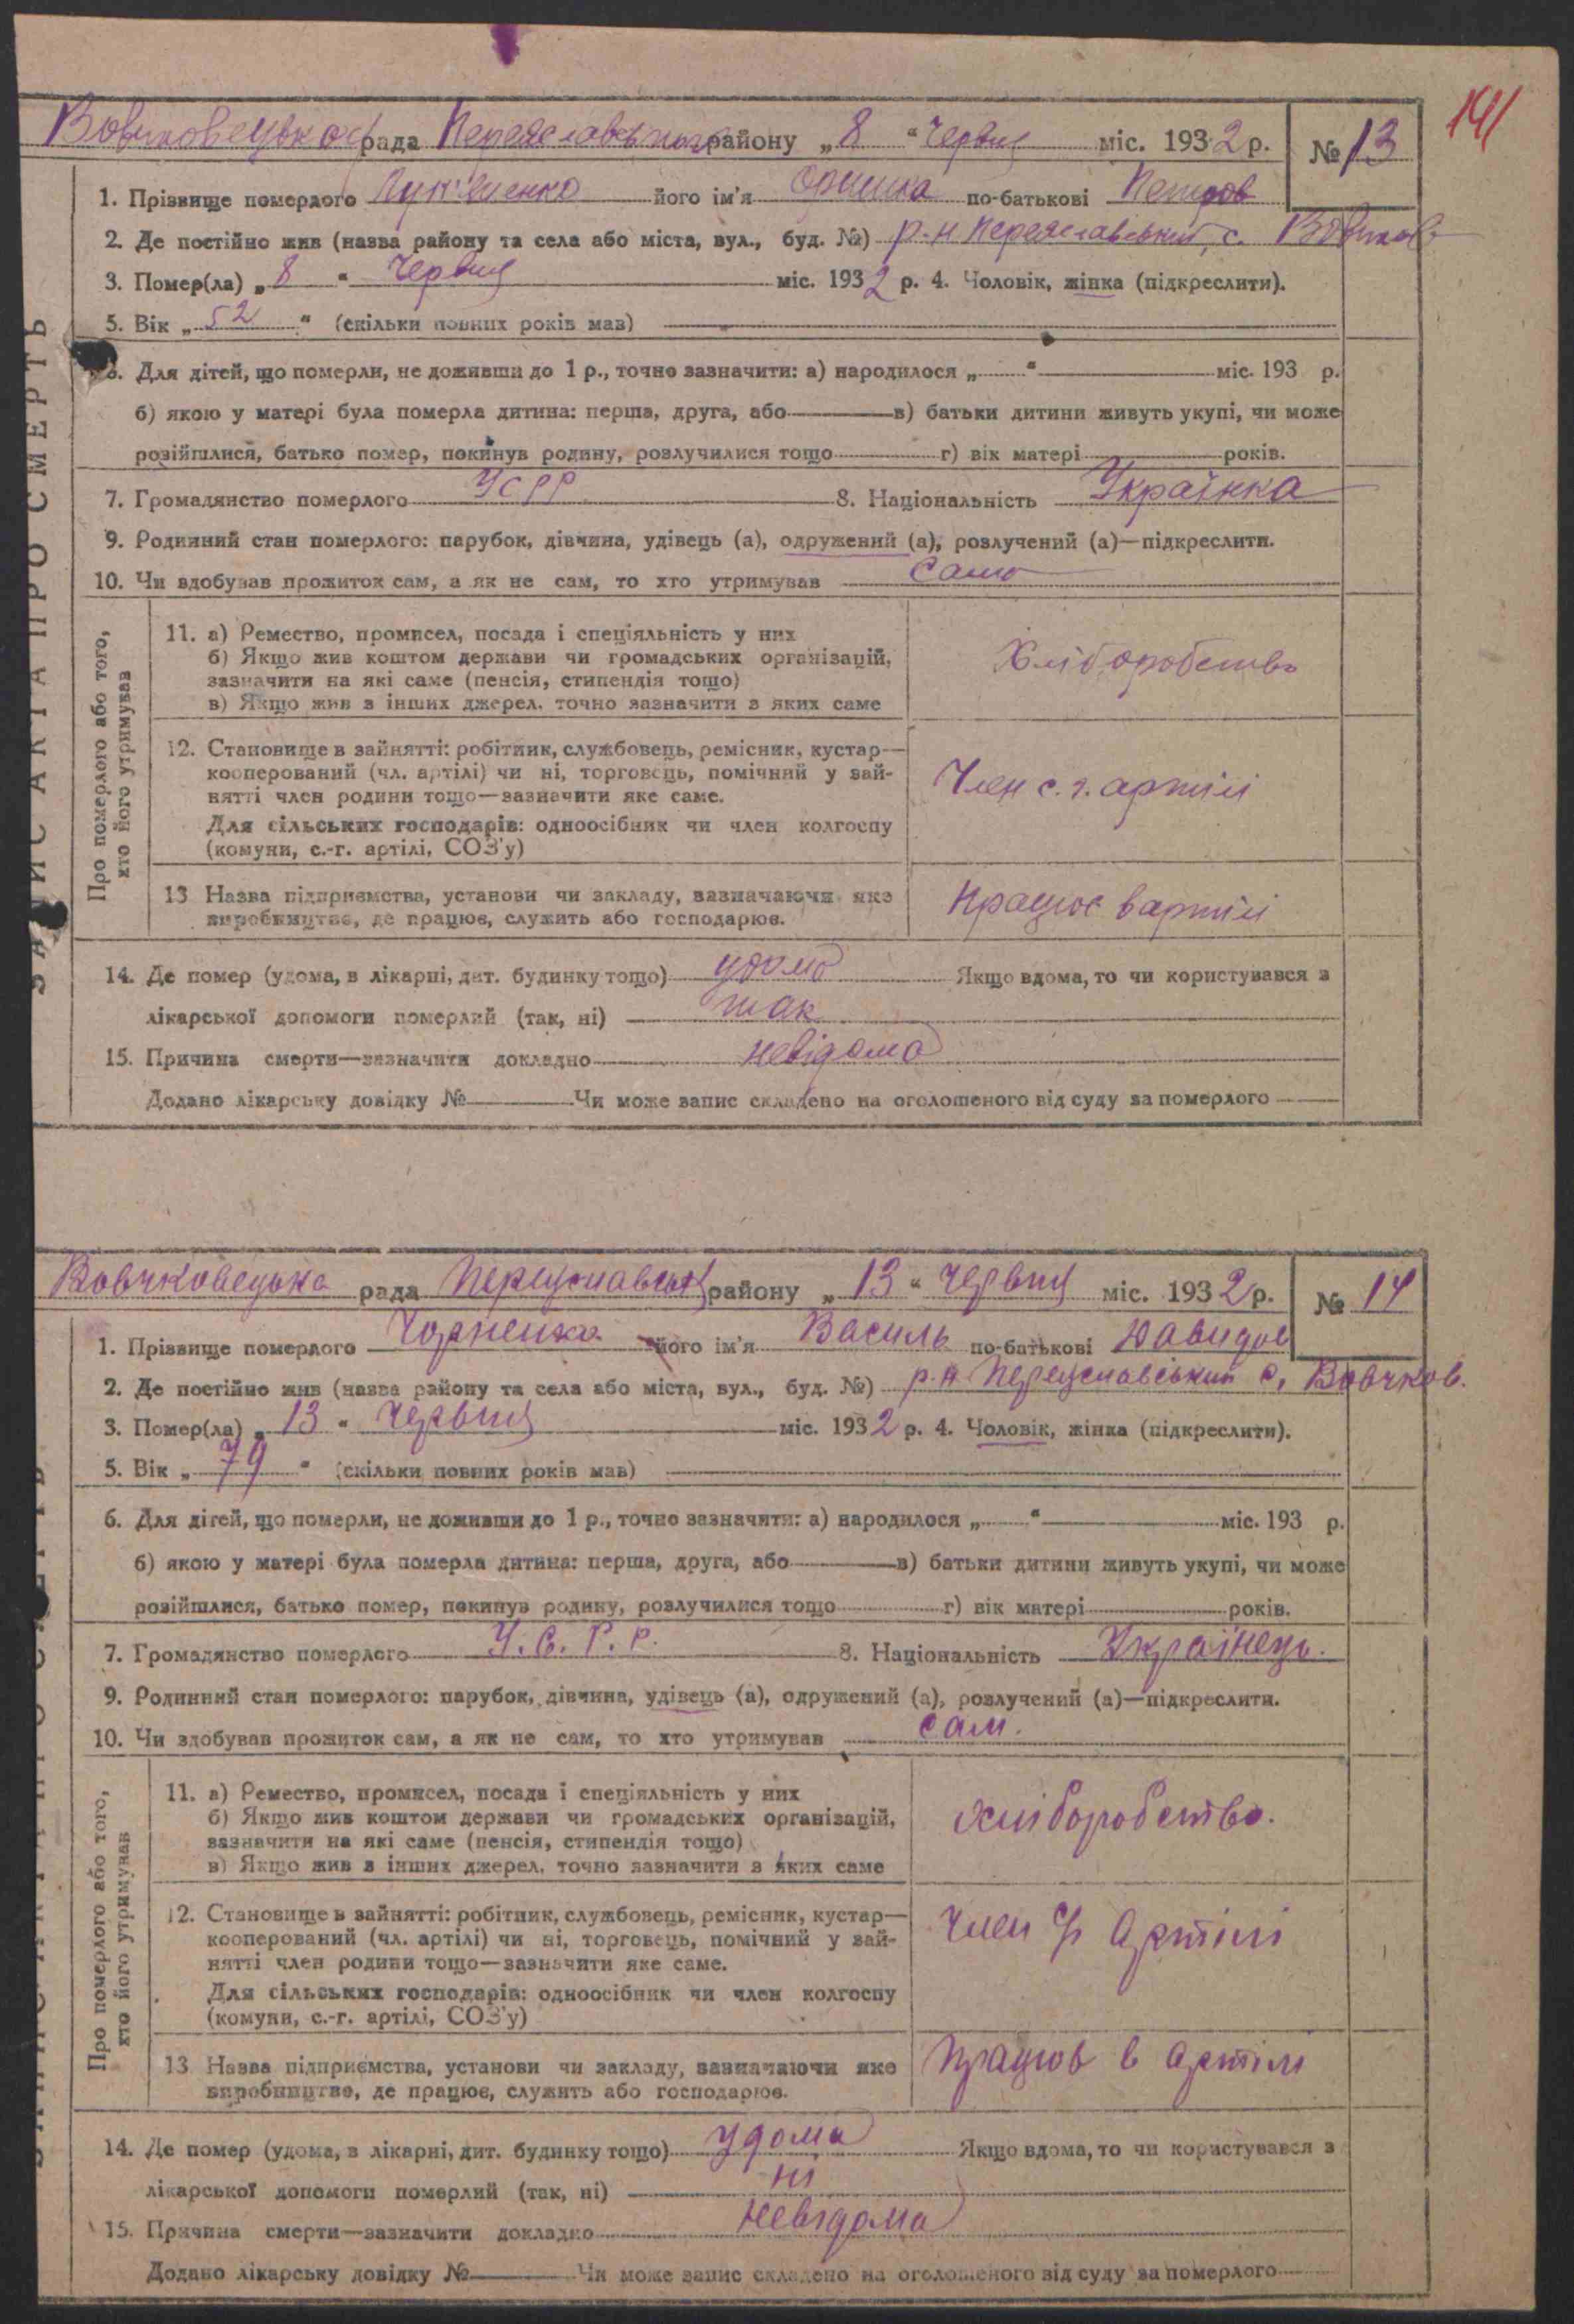 141
Вовчковецької рада Переяславського району „ 8 “ Червня міс. 1932 р. № 13
1. Прізвище померлого його ім'я Оришка по-батькові Петров
2. Де постійно жив (назва району та села або міста, вул., буд. №) р-н Переяславський, с. Вовчков
3. Помер(ла) „ 8 “ Червня міс. 1932 р. 4. Чоловік, жінка (підкреслити).
5. Вік „ 52 “ (скільки повних років мав)
6. Для дітей, що померли, не доживши до 1 р., точно зазначити: а) народилося „ “ міс. 193 р.
б) якою у матері була померла дитина: перша, друга, або в) батьки дитини живуть укупі, чи може
розійшлися, батько помер, покинув родину, розлучилися тощо г) вік матері років.
7. Громадянство померлого УСРР 8. Національність Українка
9. Родинний стан померлого: парубок, дівчина, удівець (а), одружений (а), розлучений (а)—підкреслити.
10. Чи здобував прожиток сам, а як не сам, то хто утримував сама
ЗАПИС АКТА ПРО СМЕРТЬ
Про померлого або того,
хто його утримував
11. а) Ремество, промисел, посада і спеціяльність у них
б) Якщо жив коштом держави чи громадських організацій,
зазначити на які саме (пенсія, стипендія тощо)
в) Якщо жив з інших джерел, точно зазначити з яких саме
Хліборобство
12. Становище в зайнятті: робітник, службовець, ремісник, кустар—
кооперований (чл. артілі) чи ні, торговець, помічний у зай-
нятті член родини тощо—зазначити яке саме.
Для сільських господарів: одноосібник чи член колгоспу
(комуни, с.-г. артілі, СОЗ'у)
Член с. г. артілі
13 Назва підприємства, установи чи закладу, зазначаючи яке
виробництво, де працює, служить або господарює.
Працює в артілі
14. Де помер (удома, в лікарні, дит. будинку тощо) удома Якщо вдома, то чи користувався з
лікарської допомоги померлий (так, ні) так
15. Причина смерти—зазначити докладно невідома
Додано лікарську довідку № Чи може запис складено на оголошеного від суду за померлого
Вовчковецька рада Переяславськ району „ 13 “ Червня міс. 1932 р. № 14
1. Прізвище померлого Чорненко його ім'я Василь по-батькові Давидов
2. Де постійно жив (назва району та села або міста, вул., буд. №) р-н Переяславський с. Вовчков.
3. Помер(ла) „ 13 “ Червня міс. 1932 р. 4. Чоловік, жінка (підкреслити).
5. Вік „ 79 “ (скільки повних років мав)
6. Для дітей, що померли, не доживши до 1 р., точно зазначити: а) народилося „ “ міс. 193 р.
б) якою у матері була померла дитина: перша, друга, або в) батьки дитини живуть укупі, чи може
розійшлися, батько помер, покинув родину, розлучилися тощо г) вік матері років.
7. Громадянство померлого У.С.Р.Р. 8. Національність Українець.
9. Родинний стан померлого: парубок, дівчина, удівець (а), одружений (а), розлучений (а)—підкреслити.
10. Чи здобував прожиток сам, а як не сам, то хто утримував сам.
Про померлого або того,
хто його утримував
11. а) Ремество, промисел, посада і спеціяльність у них
б) Якщо жив коштом держави чи громадських організацій,
зазначити на які саме (пенсія, стипендія тощо)
в) Якщо жив з інших джерел, точно зазначити з яких саме
Хліборобство.
12. Становище в зайнятті: робітник, службовець, ремісник, кустар—
кооперований (чл. артілі) чи ні, торговець, помічний у зай-
нятті член родини тощо—зазначити яке саме.
Для сільських господарів: одноосібник чи член колгоспу
(комуни, с.-г. артілі, СОЗ'у)
Член с/г Артілі
13 Назва підприємства, установи чи закладу, зазначаючи яке
виробництво, де працює, служить або господарює.
Працюв в артілі
14. Де помер (удома, в лікарні, дит. будинку тощо) удома Якщо вдома, то чи користувався з
лікарської допомоги померлий (так, ні) ні
15. Причина смерти—зазначити докладно невідома
Додано лікарську довідку № Чи може запис складено на оголошеного від суду за померлого